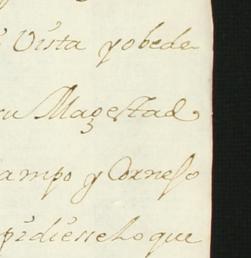 Vista y obede
su Magestad
ampo y Cornejo
pidiesse lo que